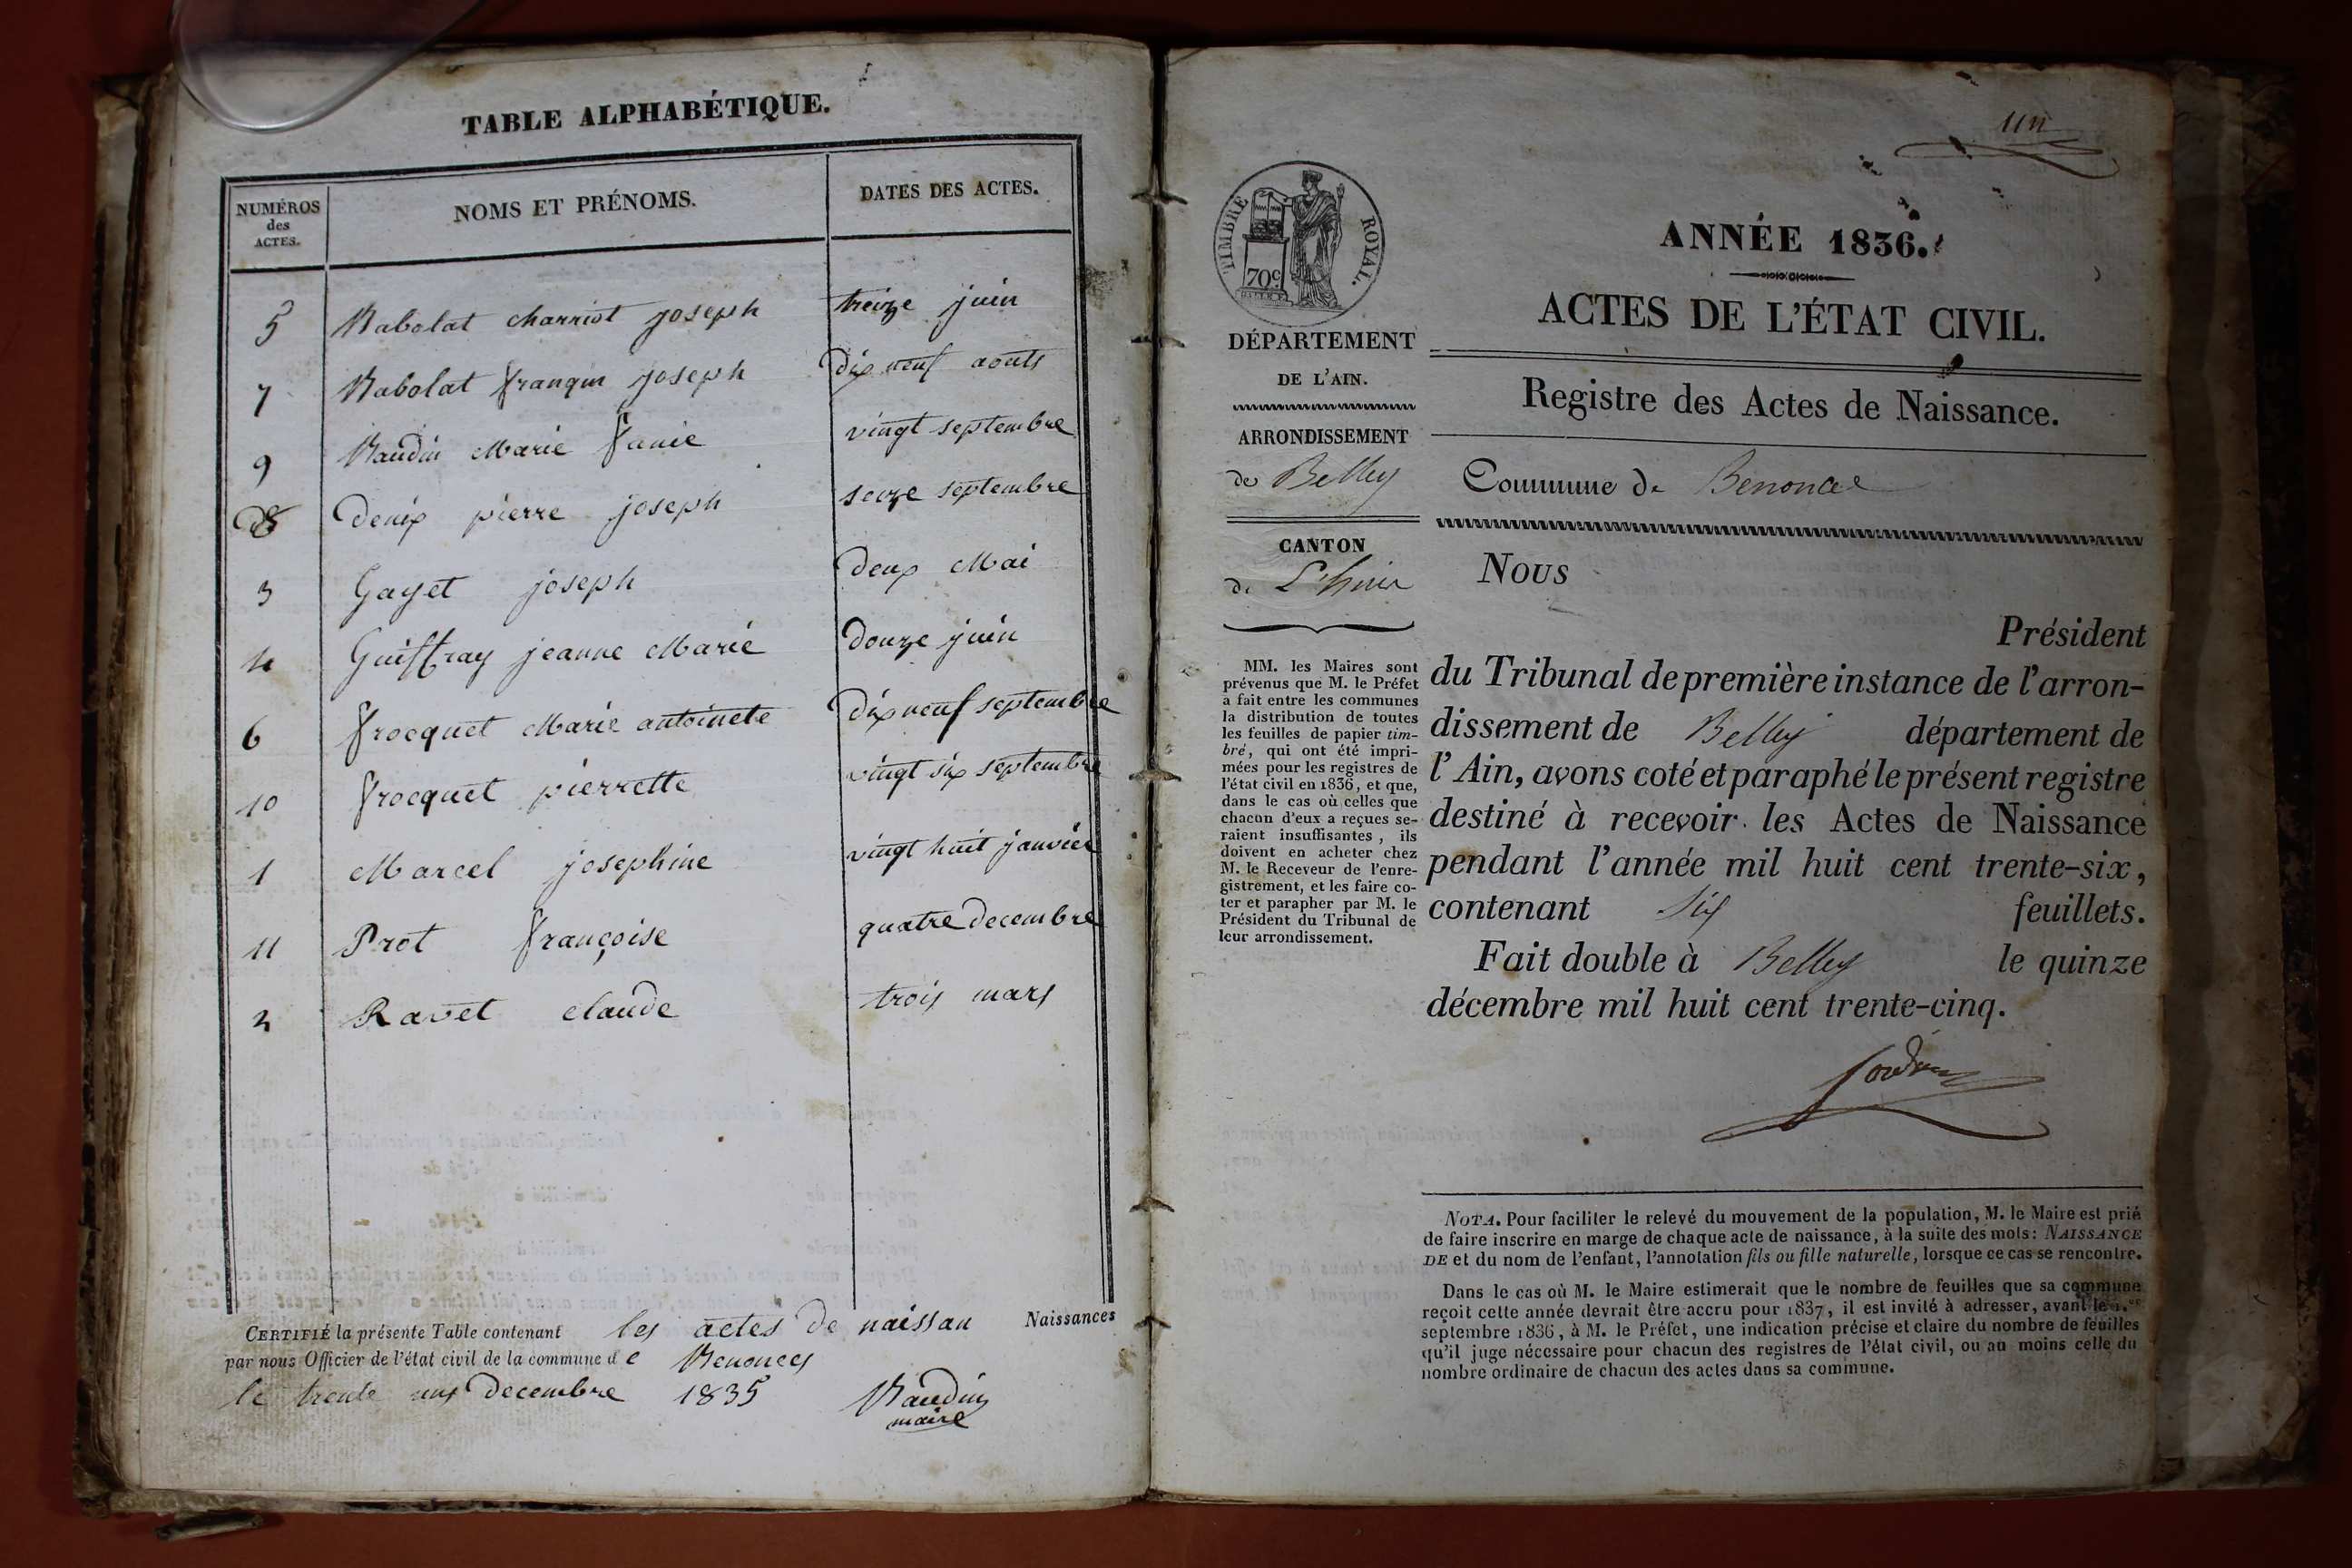 TABLE ALPHABÉTIQUE.
NUMÉROS
des
ACTES.
NOMS ET PRÉNOMS.
DATES DES ACTES.
5 Babolat charriot joseph treize juin
7 Babolat franquin joseph dix neuf aouts
9 Baudin Marie fanie vingt septembre
8 denix pierre joseph seize septembre
3 Gayet joseph deux Mai
4 Guiffray jeanne Marie douze juin
6 frocquet Marie antoinete dix neuf septembre
10 frocquet pierrette vingt six septembre
1 Marcel josephine vingt huit janvier
11 Prot françoise quatre decembre
2 Ravet claude trois mars
CERTIFIÉ la présente Table contenant les actes de naissan Naissances
par nous Officier de l'état civil de la commune de Benonces
le trente un decembre 1835 Baudin
maire
un
TIMBRE ROYAL.
70c
DÉPARTEMENT
DE L'AIN.
ARRONDISSEMENT
de Belley
CANTON
de L'huis
MM. les Maires sont
prévenus que M. le Préfet
a fait entre les communes
la distribution de toutes
les feuilles de papier tim-
bré, qui ont été impri-
mées pour les registres de
l'état civil en 1836, et que,
dans le cas où celles que
chacun d'eux a reçues se-
raient insuffisantes, ils
doivent en acheter chez
M. le Receveur de l'enre-
gistrement, et les faire co-
ter et parapher par M. le
Président du Tribunal de
leur arrondissement.
ANNÉE 1836.
ACTES DE L'ÉTAT CIVIL.
Registre des Actes de Naissance.
Commune de Benonce
Nous
Président
du Tribunal de première instance de l'arron-
dissement de Belley département de
l'Ain, avons coté et paraphé le présent registre
destiné à recevoir les Actes de Naissance
pendant l'année mil huit cent trente-six,
contenant six feuillets.
Fait double à Belley le quinze
décembre mil huit cent trente-cinq.
NOTA. Pour faciliter le relevé du mouvement de la population, M. le Maire est prié
de faire inscrire en marge de chaque acte de naissance, à la suite des mots: NAISSANCE
DE et du nom de l'enfant, l'annotation fils ou fille naturelle, lorsque ce cas se rencontre.
Dans le cas où M. le Maire estimerait que le nombre de feuilles que sa commune
reçoit cette année devrait être accru pour 1837, il est invité à adresser, avant le 1.er
septembre 1836, à M. le Préfet, une indication précise et claire du nombre de feuilles
qu'il juge nécessaire pour chacun des registres de l'état civil, ou au moins celle du
nombre ordinaire de chacun des actes dans sa commune.